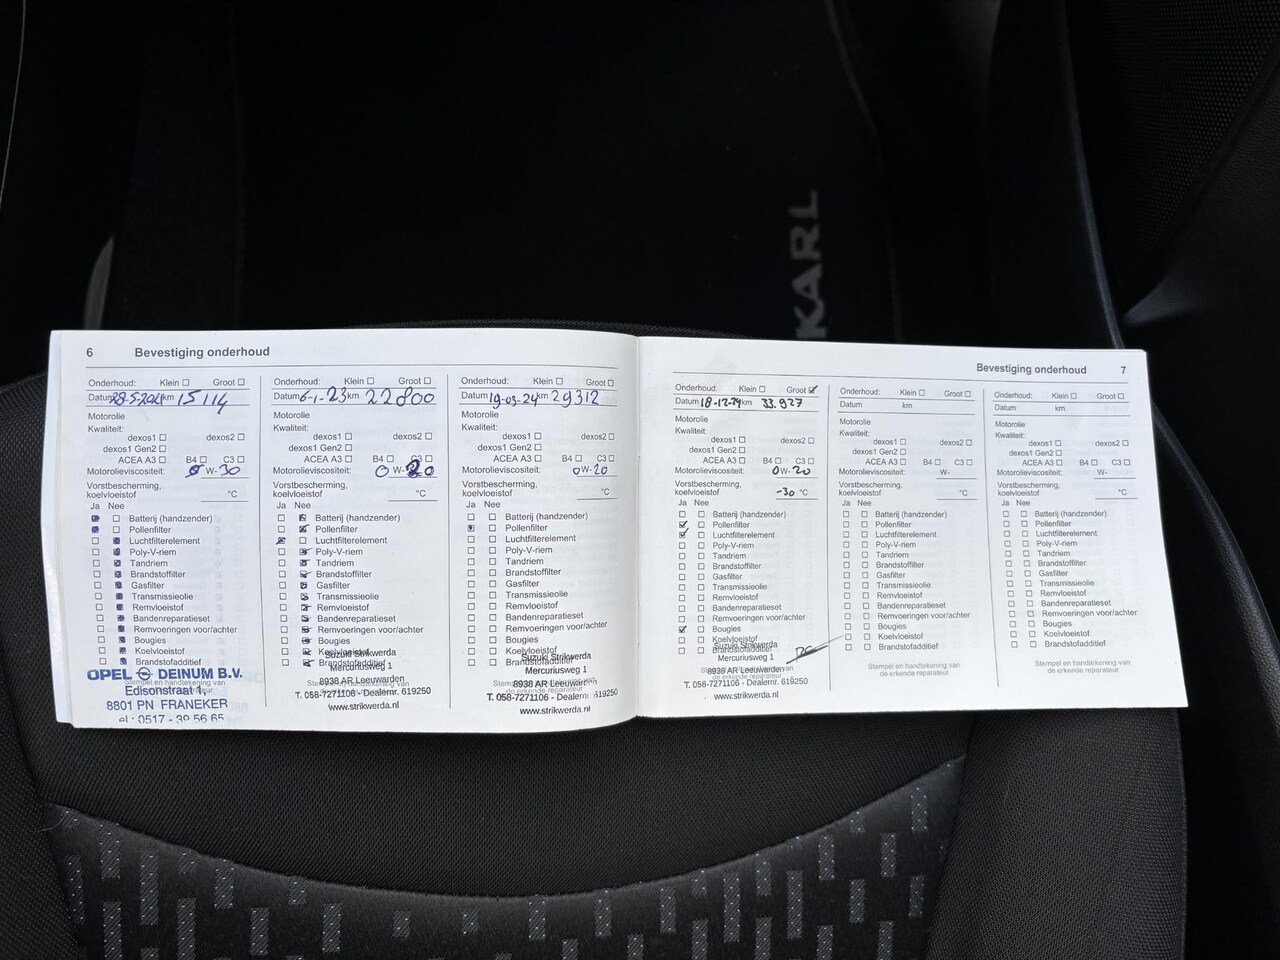 KARL
6 Bevestiging onderhoud
Onderhoud: Klein Groot
Datum 28-5-2021 km 15114
Motorolie
Kwaliteit:
dexos1 dexos2
dexos1 Gen2
ACEA A3 B4 C3
Motorolieviscositeit: 0 W-30
Vorstbescherming,
koelvloeistof °C
Ja Nee
Batterij (handzender)
Pollenfilter
Luchtfilterelement
Poly-V-riem
Tandriem
Brandstoffilter
Gasfilter
Transmissieolie
Remvloeistof
Bandenreparatieset
Remvoeringen voor/achter
Bougies
Koelvloeistof
Brandstofadditief
OPEL DEINUM B.V.
Stempel en handtekening van
Edisonstraat 1,
8801 PN FRANEKER
tel.: 0517 - 39 56 65
Onderhoud: Klein Groot
Datum 6-1-23 km 22800
Motorolie
Kwaliteit:
dexos1 dexos2
dexos1 Gen2
ACEA A3 B4 C3
Motorolieviscositeit: 0 W-20
Vorstbescherming,
koelvloeistof °C
Ja Nee
Batterij (handzender)
Pollenfilter
Luchtfilterelement
Poly-V-riem
Tandriem
Brandstoffilter
Gasfilter
Transmissieolie
Remvloeistof
Bandenreparatieset
Remvoeringen voor/achter
Bougies
Koelvloeistof
Suzuki Strikwerda
Brandstofadditief
Mercuriusweg 1
8938 AR Leeuwarden
Stempel en handtekening van
T. 058-7271106 - Dealernr. 619250
www.strikwerda.nl
Onderhoud: Klein Groot
Datum 19-03-24 km 29312
Motorolie
Kwaliteit:
dexos1 dexos2
dexos1 Gen2
ACEA A3 B4 C3
Motorolieviscositeit: 0 W-20
Vorstbescherming,
koelvloeistof °C
Ja Nee
Batterij (handzender)
Pollenfilter
Luchtfilterelement
Poly-V-riem
Tandriem
Brandstoffilter
Gasfilter
Transmissieolie
Remvloeistof
Bandenreparatieset
Remvoeringen voor/achter
Bougies
Koelvloeistof
Suzuki Strikwerda
Brandstofadditief
Mercuriusweg 1
8938 AR Leeuwarden
Stempel en handtekening van
de erkende reparateur
T. 058-7271106 - Dealernr. 619250
www.strikwerda.nl
Bevestiging onderhoud 7
Onderhoud: Klein Groot
Datum 18-12-24 km 33.927
Motorolie
Kwaliteit:
dexos1 dexos2
dexos1 Gen2
ACEA A3 B4 C3
Motorolieviscositeit: 0 W-20
Vorstbescherming,
koelvloeistof -30 °C
Ja Nee
Batterij (handzender)
Pollenfilter
Luchtfilterelement
Poly-V-riem
Tandriem
Brandstoffilter
Gasfilter
Transmissieolie
Remvloeistof
Bandenreparatieset
Remvoeringen voor/achter
Bougies
Koelvloeistof
Suzuki Strikwerda
Brandstofadditief
Mercuriusweg 1
8938 AR Leeuwarden
Stempel en handtekening van
de erkende reparateur
T. 058-7271106 - Dealernr. 619250
www.strikwerda.nl
Onderhoud: Klein Groot
Datum km
Motorolie
Kwaliteit:
dexos1 dexos2
dexos1 Gen2
ACEA A3 B4 C3
Motorolieviscositeit: W-
Vorstbescherming,
koelvloeistof °C
Ja Nee
Batterij (handzender)
Pollenfilter
Luchtfilterelement
Poly-V-riem
Tandriem
Brandstoffilter
Gasfilter
Transmissieolie
Remvloeistof
Bandenreparatieset
Remvoeringen voor/achter
Bougies
Koelvloeistof
Brandstofadditief
Stempel en handtekening van
de erkende reparateur
Onderhoud: Klein Groot
Datum km
Motorolie
Kwaliteit:
dexos1 dexos2
dexos1 Gen2
ACEA A3 B4 C3
Motorolieviscositeit: W-
Vorstbescherming,
koelvloeistof °C
Ja Nee
Batterij (handzender)
Pollenfilter
Luchtfilterelement
Poly-V-riem
Tandriem
Brandstoffilter
Gasfilter
Transmissieolie
Remvloeistof
Bandenreparatieset
Remvoeringen voor/achter
Bougies
Koelvloeistof
Brandstofadditief
Stempel en handtekening van
de erkende reparateur